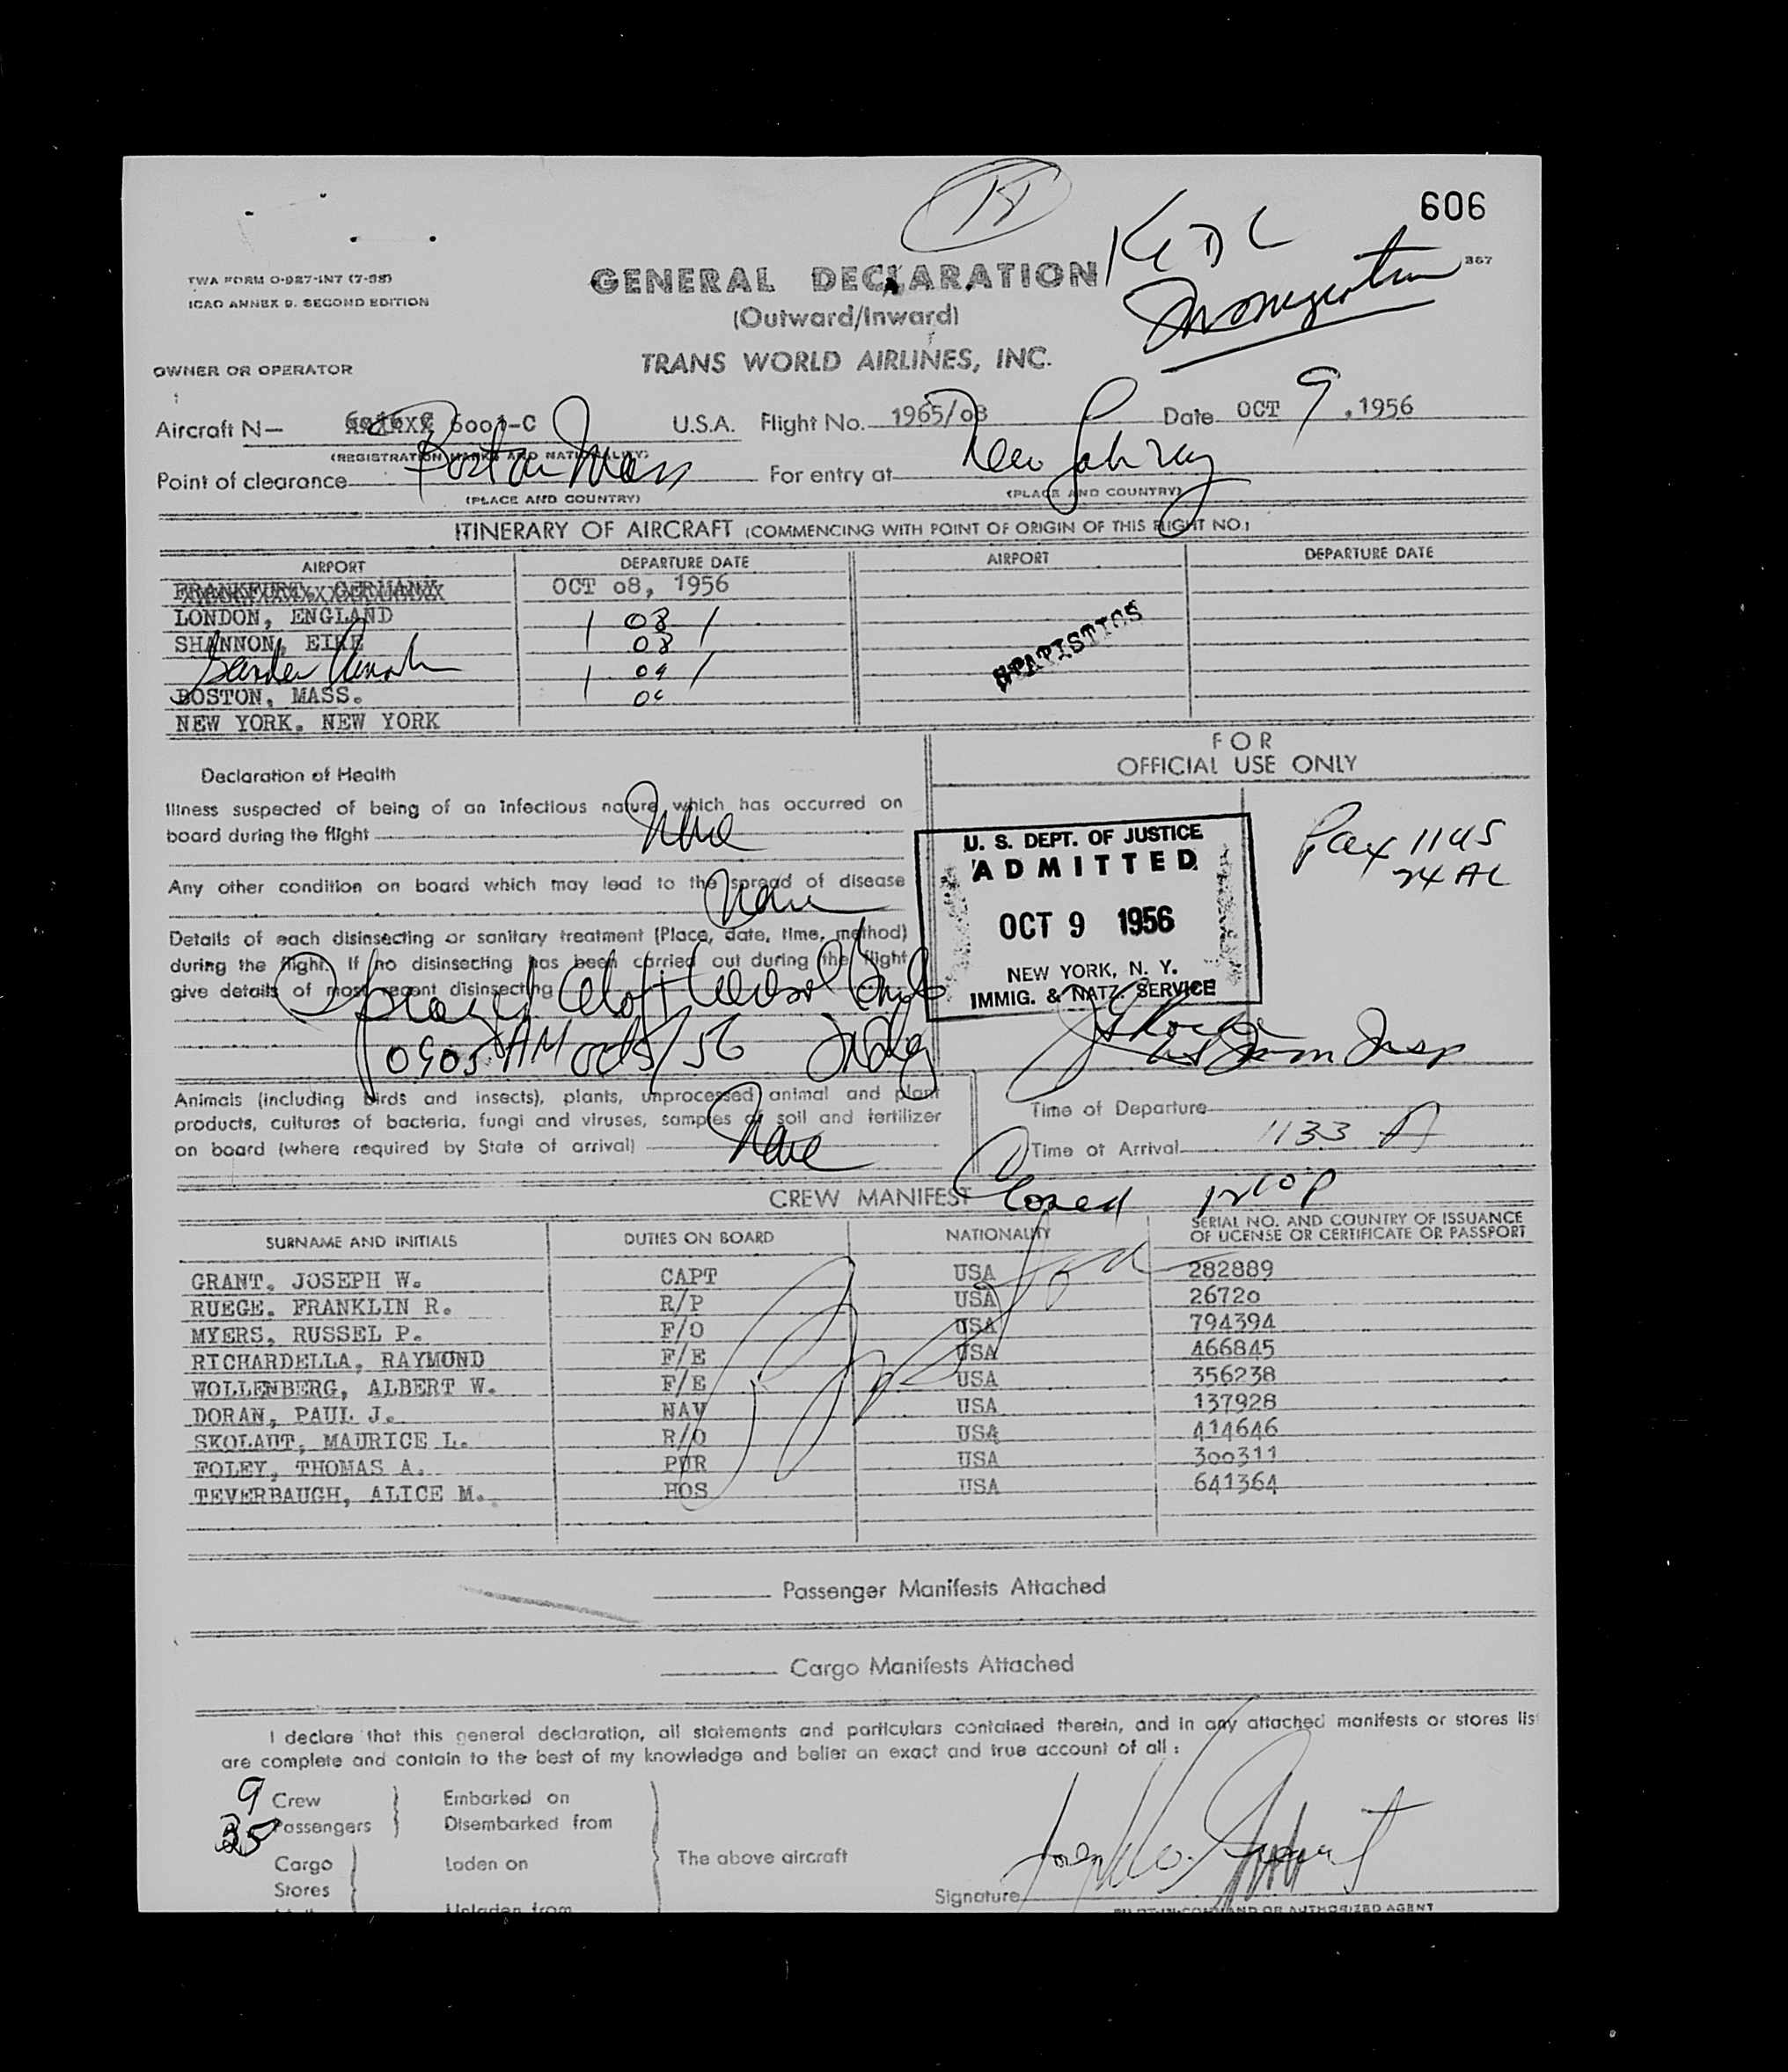 606
TWA FORM O-987-INT (7-55)
ICAO ANNEX 9. SECOND EDITION
367
GENERAL DECLARATION
(Outward/Inward)
TRANS WORLD AIRLINES, INC.
Immigration
OWNER OR OPERATOR
Aircraft N— 6001-C U.S.A. Flight No. 1965/08 Date OCT 9, 1956
(REGISTRATION MARKS AND NATIONALITY)
Point of clearance Boston Mass For entry at
(PLACE AND COUNTRY) (PLACE AND COUNTRY)
ITINERARY OF AIRCRAFT (COMMENCING WITH POINT OF ORIGIN OF THIS FLIGHT NO.)
AIRPORT DEPARTURE DATE AIRPORT DEPARTURE DATE
FRANKFURT, GERMANY OCT 08, 1956
LONDON, ENGLAND / 08 /
SHANNON, EIRE 08
Gander / 09 /
BOSTON, MASS.
NEW YORK. NEW YORK
STATISTICS
Declaration of Health
Illness suspected of being of an infectious nature which has occurred on
board during the flight None
Any other condition on board which may lead to the spread of disease
None
Details of each disinsecting or sanitary treatment (Place, date, time, method)
during the flight. If no disinsecting has been carried out during the flight
give details of most recent disinsecting
Sprayed Aloft Aerosol Bomb
0905 AM
Animals (including birds and insects), plants, unprocessed animal and plant
products, cultures of bacteria, fungi and viruses, samples of soil and fertilizer
on board (where required by State of arrival) None
FOR
OFFICIAL USE ONLY
U. S. DEPT. OF JUSTICE
ADMITTED
OCT 9 1956
NEW YORK, N. Y.
IMMIG. & NATZ. SERVICE
Pax 1145
24 AL
Imm Insp
Time of Departure
Time of Arrival 1133 A
Closed 1210P
CREW MANIFEST
SURNAME AND INITIALS DUTIES ON BOARD NATIONALITY SERIAL NO. AND COUNTRY OF ISSUANCE OF LICENSE OR CERTIFICATE OR PASSPORT
GRANT, JOSEPH W. CAPT USA 282889
RUEGE. FRANKLIN R. R/P USA 26720
MYERS, RUSSEL P. F/O USA 794394
RICHARDELLA, RAYMOND F/E USA 466845
WOLLENBERG, ALBERT W. F/E USA 356238
DORAN, PAUL J. NAV USA 137928
SKOLAUT, MAURICE L. R/O USA 414646
FOLEY, THOMAS A. PUR USA 300311
TEVERBAUGH, ALICE M. HOS USA 641364
Passenger Manifests Attached
Cargo Manifests Attached
I declare that this general declaration, all statements and particulars contained therein, and in any attached manifests or stores lis
are complete and contain to the best of my knowledge and belief an exact and true account of all :
9 Crew Embarked on
35 Passengers Disembarked from
Cargo Laden on The above aircraft
Stores
Unladen from
Signature
PILOT-IN-COMMAND OR AUTHORIZED AGENT